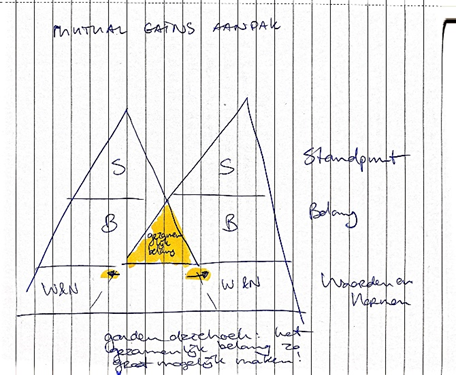 MUTUAL GAINS AANPAK
S S Standpunt
B B Belang
gezamen
lijk
belang
W&N W&N Waarden en
Normen
gouden driehoek: het
gezamenlijk belang zo
groot mogelijk maken!